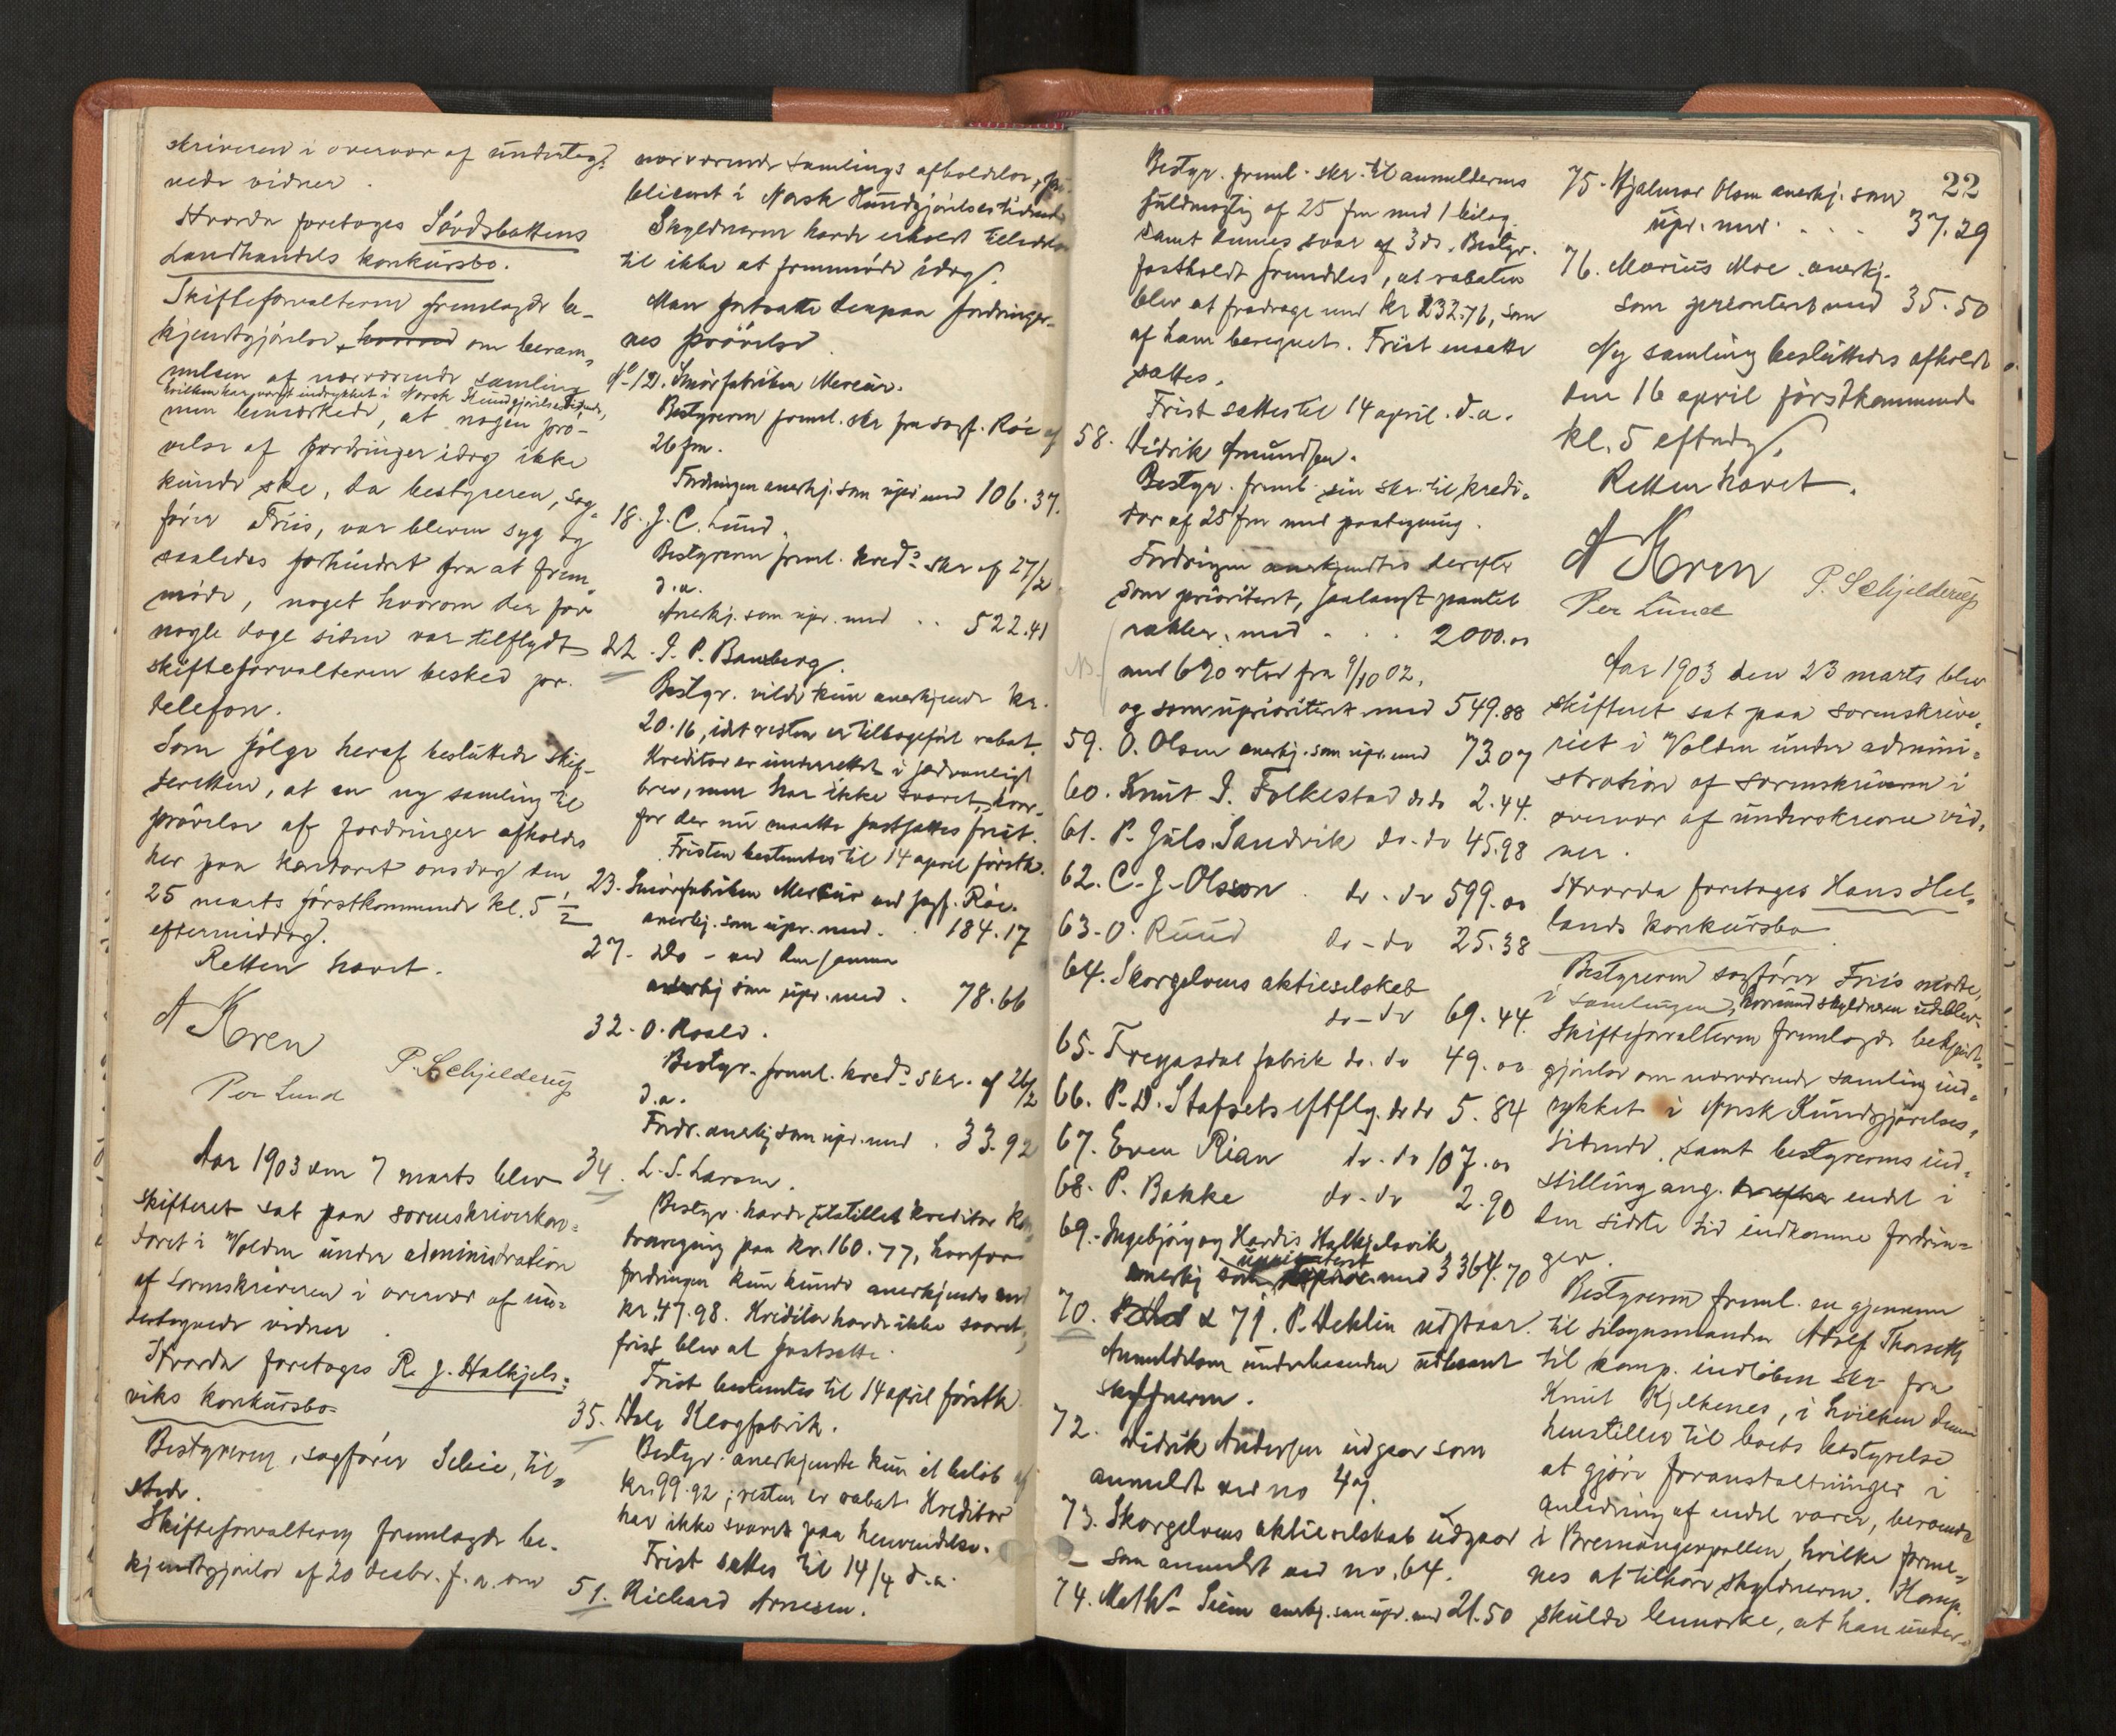 skriveren i overvær af underteg-
nede vidner.
Hvorda foretoges Søvdsbottens
Landhandels konkursbo.
Skifteforvalteren fremlagde be-
kjendtgjørelse, hvorved om beram-
melsen af nærværende samling
hvilken har været indrykket i Norsk Kundgjørelsestidende,
men bemærkede, at nogen prø-
velse af fordringer idag ikke
kunde ske, da bestyreren, sag-
fører Friis, var bleven syg og
saaledes forhindret fra at frem-
møde, noget hvorom der for
nogle dage siden var tilflydt
skifteforvalteren besked pr.
telefon.
Som følge heraf besluttede skif-
teretten, at en ny samling til
prøvelse af fordringer afholdes
her paa kontoret onsdag den
25 marts førstkommende kl. 5 1/2
eftermiddag.
Retten hævet.
A Koren
P. Schjelderup
Per Lund
Aar 1903 den 7 marts blev
skifteret sat paa sorenskriverkon-
toret i Volden under administration
af sorenskriveren i overvær af un-
dertegnede vidner.
Hvorda foretoges R. J. Halkjels-
viks konkursbo.
Bestyreren, sagfører Schie, til-
stede.
Skifteforvalteren fremlagde be-
kjendtgjørelse af 20 decbr. f. a. om
nærværende samlings afholdelse, pu-
bliceret i Norsk Kundgjørelsestidende
Skyldneren havde erholdt tilladelse
til ikke at fremmøde idag.
Man fortsatte derpaa fordringer-
nes prøvelse.
No 12. Smørfabriken Mercur.
Bestyreren freml. skr fra sagf. Røe af
26 fm.
Fordringen anerkj. som upr. med 106.37.
18. J. C. Lund.
Bestyreren freml. kreds skr af 27/2
d. a.
Anerkj. som upr. med .. 522.41
22. I. P. Bamberg.
Bestyr. vilde kun anerkjende kr.
20.16, idet resten er tilbageført rabat.
Kreditor er underrettet i sædvanligt
brev, men har ikke svaret, hvor-
for der nu maatte fastsættes frist.
Fristen bestemtes til 14 april førstk.
23. Smørfabriken Mercur ved sagf. Røe.
anerkj. som upr. med . . 184.17
27. Do - ved den samme
anerkj som upr. med . 78.66
32. O. Roald.
Bestyr. freml. kreds skr. af 26/2
d. a.
Fordr. anerkj som upr. med . 33.92
34. L. S. Larsen.
Bestyr. havde tilstillet kreditor kon
traregning paa kr. 160.77, hvorfor
fordringen kun kunde anerkjendes med
kr. 47.98. Kreditor havde ikke svaret,
frist blev at fastsætte.
Frist bestemtes til 14 april førstk
35. Dale Klogfabrik.
Bestyr. anerkjendte kun et beløb af
kr. 99.92; resten er rabat. Kreditor
har ikke svaret paa henvendelse.
Frist sattes til 14/4 d.a.
51. Richard Arnesen.
22
Bestyr. freml. skr. til anmelderens
fuldmægtig af 25 fm med 1 bilag
samt dennes svar af 3 ds. Bestyr.
fastholdt fremdeles, at rabaten
blev at fradrage med kr 232.76, som
af ham beregnet. Frist ansatte
sattes.
Frist sattes til 14 april d.a.
58. Didrik Amundsen.
Bestyr. freml. sin skr. til kredi-
tor af 25 fm med paategning.
Fordringen anerkjendtes derefter
som prioritert, saalangt pantet
rækker, med . . . 2000.00
NB. med 6% rter fra 9/10 02,
og som uprioritert med 549.88
59. O. Olsen anerkj. som upr. med 73.07
60. Knut I. Folkestad do do 2.44.
61. P. Juls. Sandvik do - do 45.98
62. C. J. Olsson . do - do 599.00
63. O. Ruud do - do 25.38
64. Skorgelvens aktieselskab
do - do 69.44.
65. Freyasdal fabrik do. do 49.00
66. P. D. Stafsets eftflg. do do 5.84
67. Even Rian do - do 107.00
68. P. Bakke do - do 2.90
69. Ingebjørg og Hardis Halkjelsvik
uprioritert
anerkj som med 3364.70
70. & 71. P. Deklin udstaar.
Anmeldelsen underhaanden udlaant
skyldneren.
72. Didrik Andersen udgaar som
anmeldt ved no 49.
73. Skorgelvens aktieselskab udgaar
- som anmeldt ved no. 64.
74. Maths Siem anerkj. som upr. med 21.50
75. Hjalmar Olsen anerkj. som
upr. med . . . 37.29
76. Marius Moe anerkj.
som prioritert med 35.50
Ny samling besluttedes afholdt
den 16 april førstkommende
kl. 5 eftmdg.
Retten hævet.
A Koren
P. Schjelderup
Per Lund
Aar 1903 den 23 marts blev
skifteret sat paa sorenskrive-
riet i Volden under admini-
stration af sorenskriveren i
overvær af underskrevne vid-
ner.
Hvorda foretoges Hans Hel-
lands konkursbo
Bestyreren sagfører Friis mødte
i samlingen, hvorimod skyldneren udeblev.
Skifteforvalteren fremlagde bekjendt-
gjørelse om nærværende samling ind-
rykket i Norsk Kundgjørelses-
tidende, samt bestyrerens ind-
stilling ang. endel i
den sidste tid indkomne fordrin-
ger.
Bestyreren freml. en gjennem
til tilsynsmanden Adolf Thorseth
til komp. indløben skr fra
Knut Kjelkenes, i hvilken denne
henstiller til boets bestyrelse
at gjøre foranstaltninger i
anledning af endel varer, beroende
i Bremangerpollen, hvilke forme-
nes at tilhøre skyldneren. Komp.
skulde bemærke, at han under-